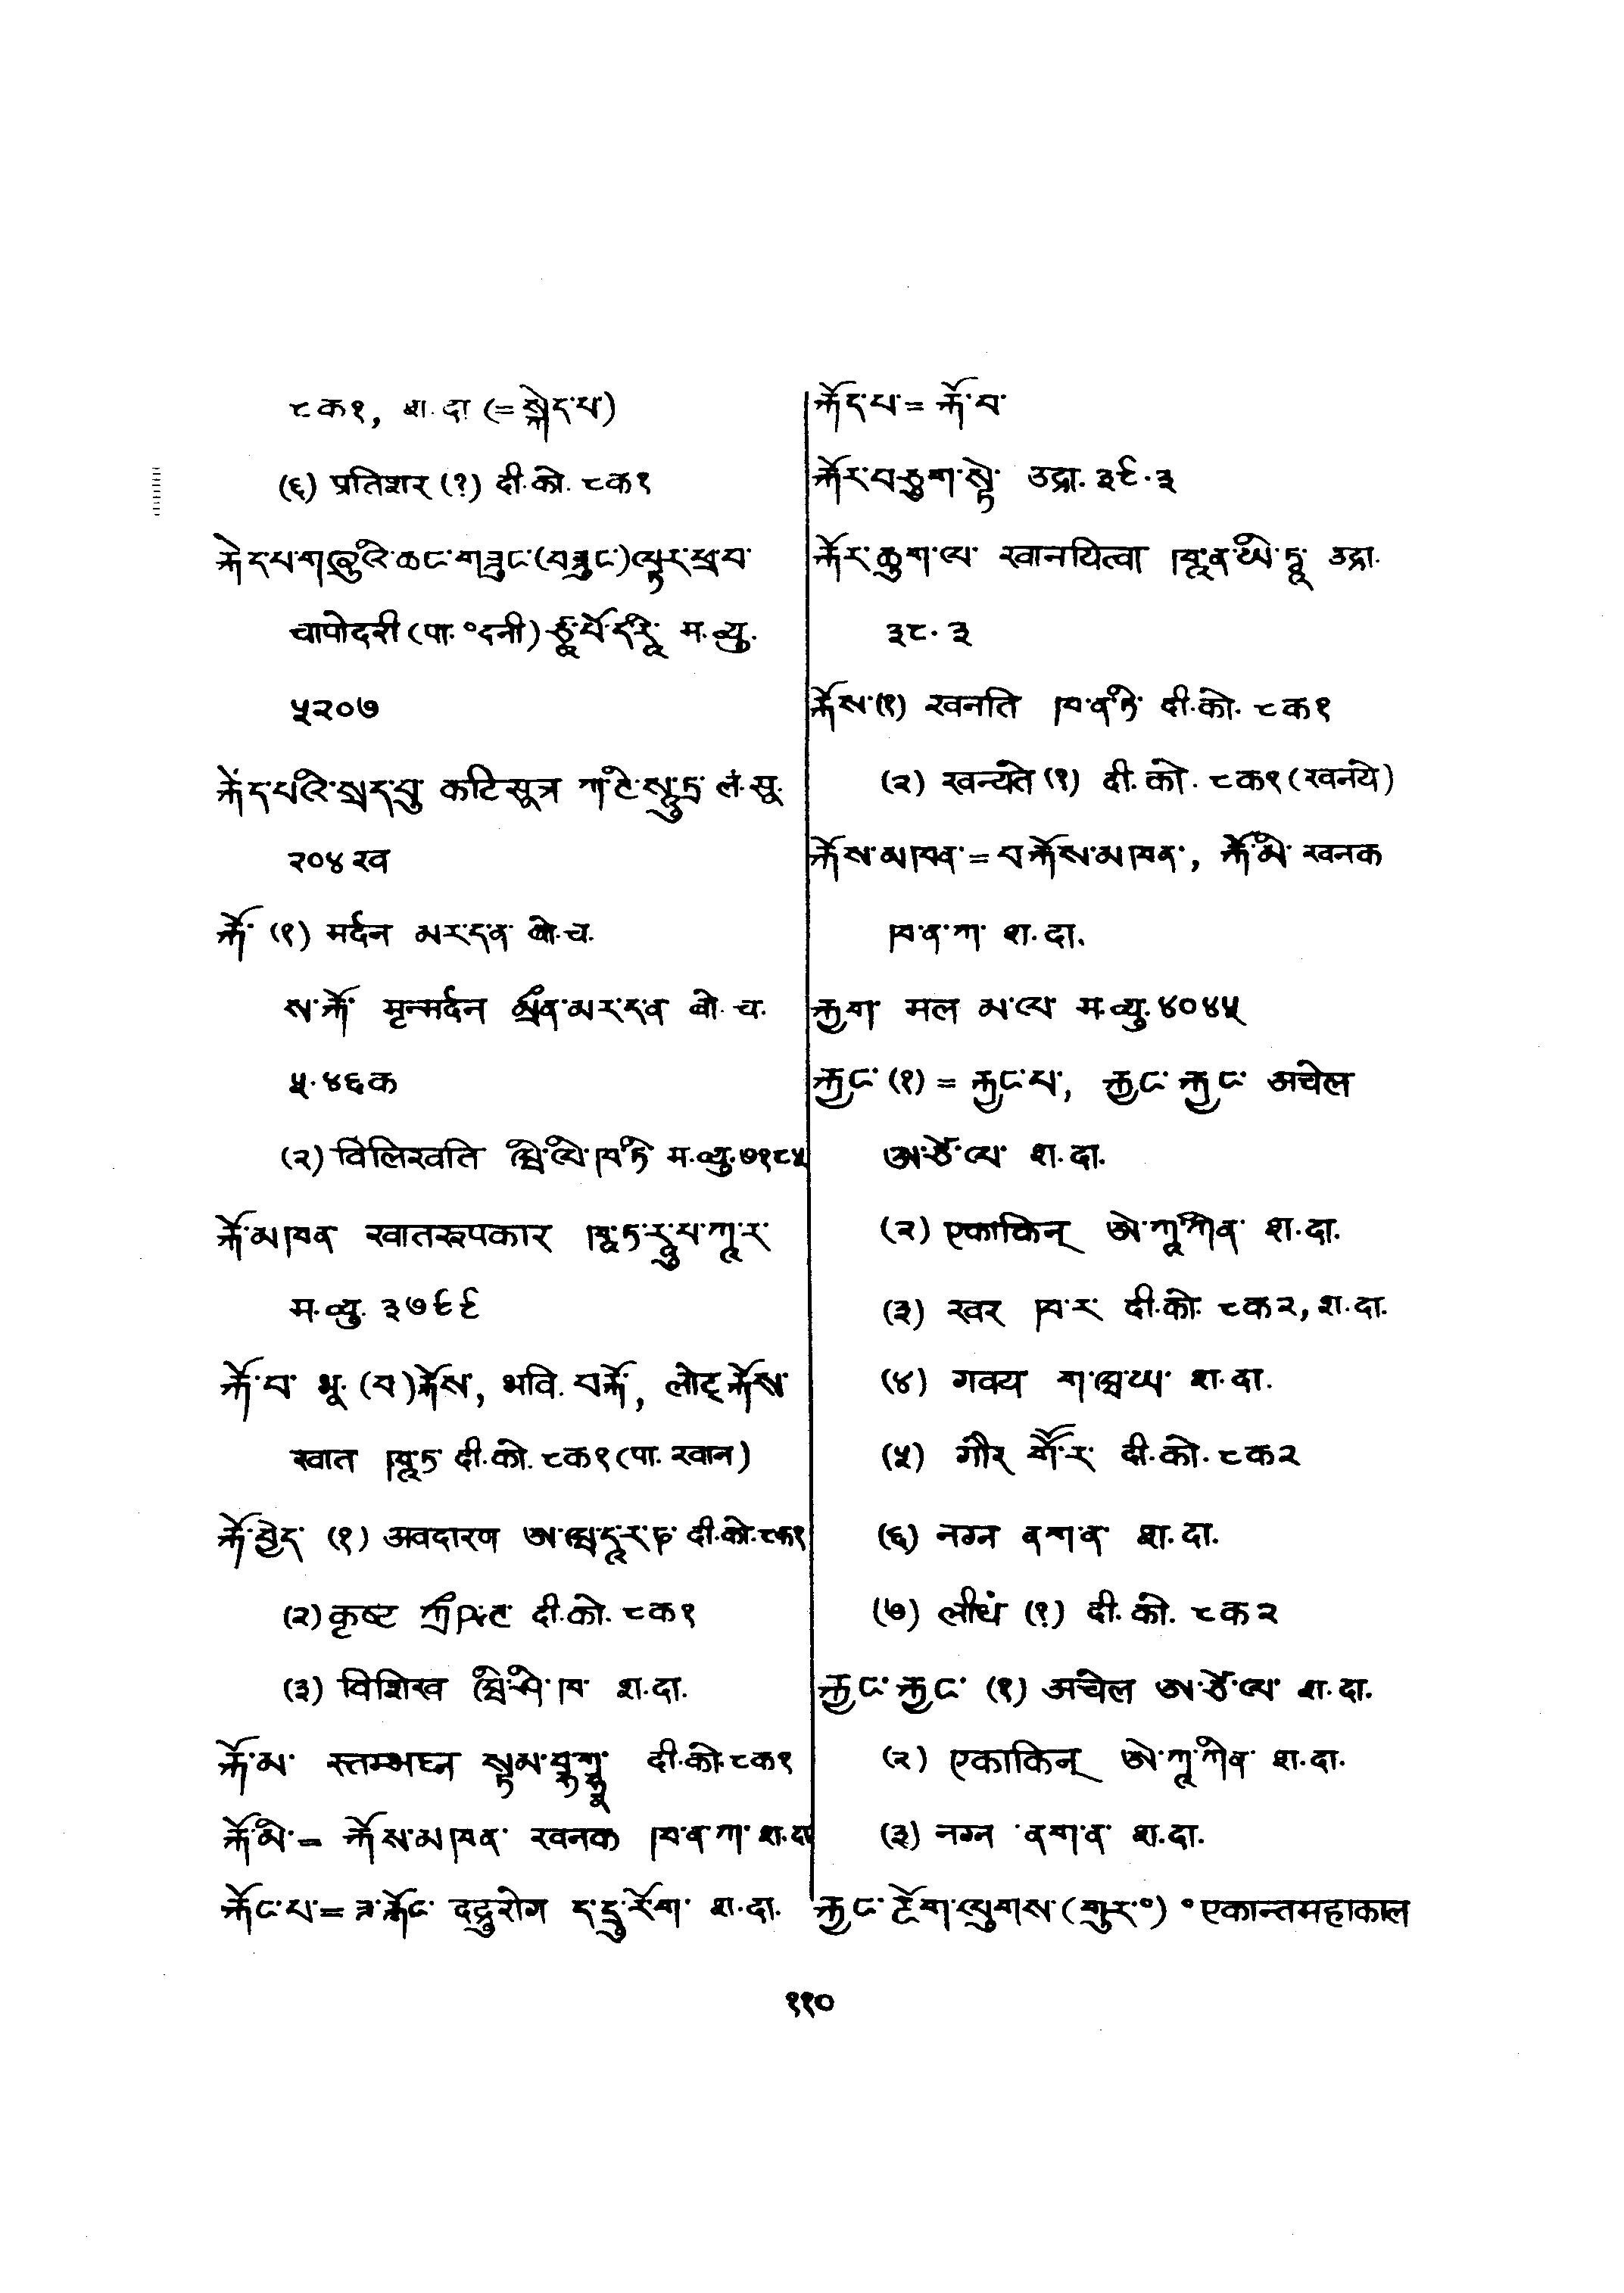 ८क१, श.दा (= སྐེད་པ་)
(६) प्रतिशर (?) दी.को. ८क१
རྐེད་པ་གཞུའི་ཆང་གཟུང་(བཟུང་)ལྟར་ཕྲ་བ་
चापोदरी (पा. °दनी) ཙཱ་པོ་ད་རཱི་ म.व्यु.
५२०७
རྐེད་པའི་སྲད་བུ་ कटिसूत्र ཀ་ཊི་སཱུ་ཏྲ་ लं.सू.
२०४ ख
རྐོ་ (१) मर्दन མར་ད་ན་ बो.च.
ས་རྐོ་ मृन्मर्दन མྲྀན་མར་ད་ན་ बो.च.
५.४६क
(२) विलिखति བི་ལི་ཁ་ཏི་ म.व्यु.७१८५
རྐོ་མཁན་ खातरूपकार ཁཱ་ཏ་རཱུ་པ་ཀཱ་ར་
म.व्यु. ३७९९
རྐོ་བ་ भू. (བ)རྐོས་, भवि. བརྐོ་, लोट् རྐོས་
खात ཁཱ་ཏ་ दी.को. ८क१ (पा. खान)
རྐོ་བྱེད་ (१) अवदारण ཨ་བ་དཱ་ར་ཎ་ दी.को.८क१
(२) कृष्ट ཀྲྀཥ་ཊ་ दी.को. ८क१
(३) विशिख བི་ཤི་ཁ་ श.दा.
རྐོ་མ་ स्तम्भघ्न दी.को.८क१
རྐོ་མི་ = རྐོས་མཁན་ खनक ཁ་ན་ཀ་ श.दा
རྐོང་པ་ = ཟ་རྐོང་ दद्रुरोग ད་དྲུ་རོ་ག་ श.दा.
རྐོད་པ་ = རྐོ་བ་
རྐོར་བཅུག་སྟེ་ उद्रा. ३९.३
རྐོར་ཆུག་ལ་ खानयित्वा ཁཱ་ན་ཡི་ཏྭཱ་ उद्रा.
३८.३
རྐོས་ (१) खनति ཁ་ན་ཏི་ दी.को. ८क१
(२) खन्यते (?) दी.को. ८क१ (खनये)
རྐོས་མཁན་ = བརྐོས་མཁན་, རྐོ་མི་ खनक
ཁ་ན་ཀ་ श.दा.
རྐྱག་ मल མ་ལ་ म.व्यु.४०४५
རྐྱང་ (१) = རྐྱང་པ་, རྐྱང་རྐྱང་ अचेल
ཨ་ཙེ་ལ་ श.दा.
(२) एकाकिन् ཨེ་ཀཱ་ཀིན་ श.दा.
(३) खर ཁ་ར་ दी.को. ८क२, श.दा.
(४) गवय ག་བ་ཡ་ श.दा.
(५) गौर གཽ་ར་ दी.को. ८क२
(६) नग्न ནག་ན་ श.दा.
(७) लीधं (?) दी.को. ८क२
རྐྱང་རྐྱང་ (१) अचेल ཨ་ཙེ་ལ་ श.दा.
(२) एकाकिन् ཨེ་ཀཱ་ཀིན་ श.दा.
(३) नग्न ནག་ན་ श.दा.
རྐྱང་རྫོགལུགས་ (གུར་°) °एकान्तमहाकाल
११०